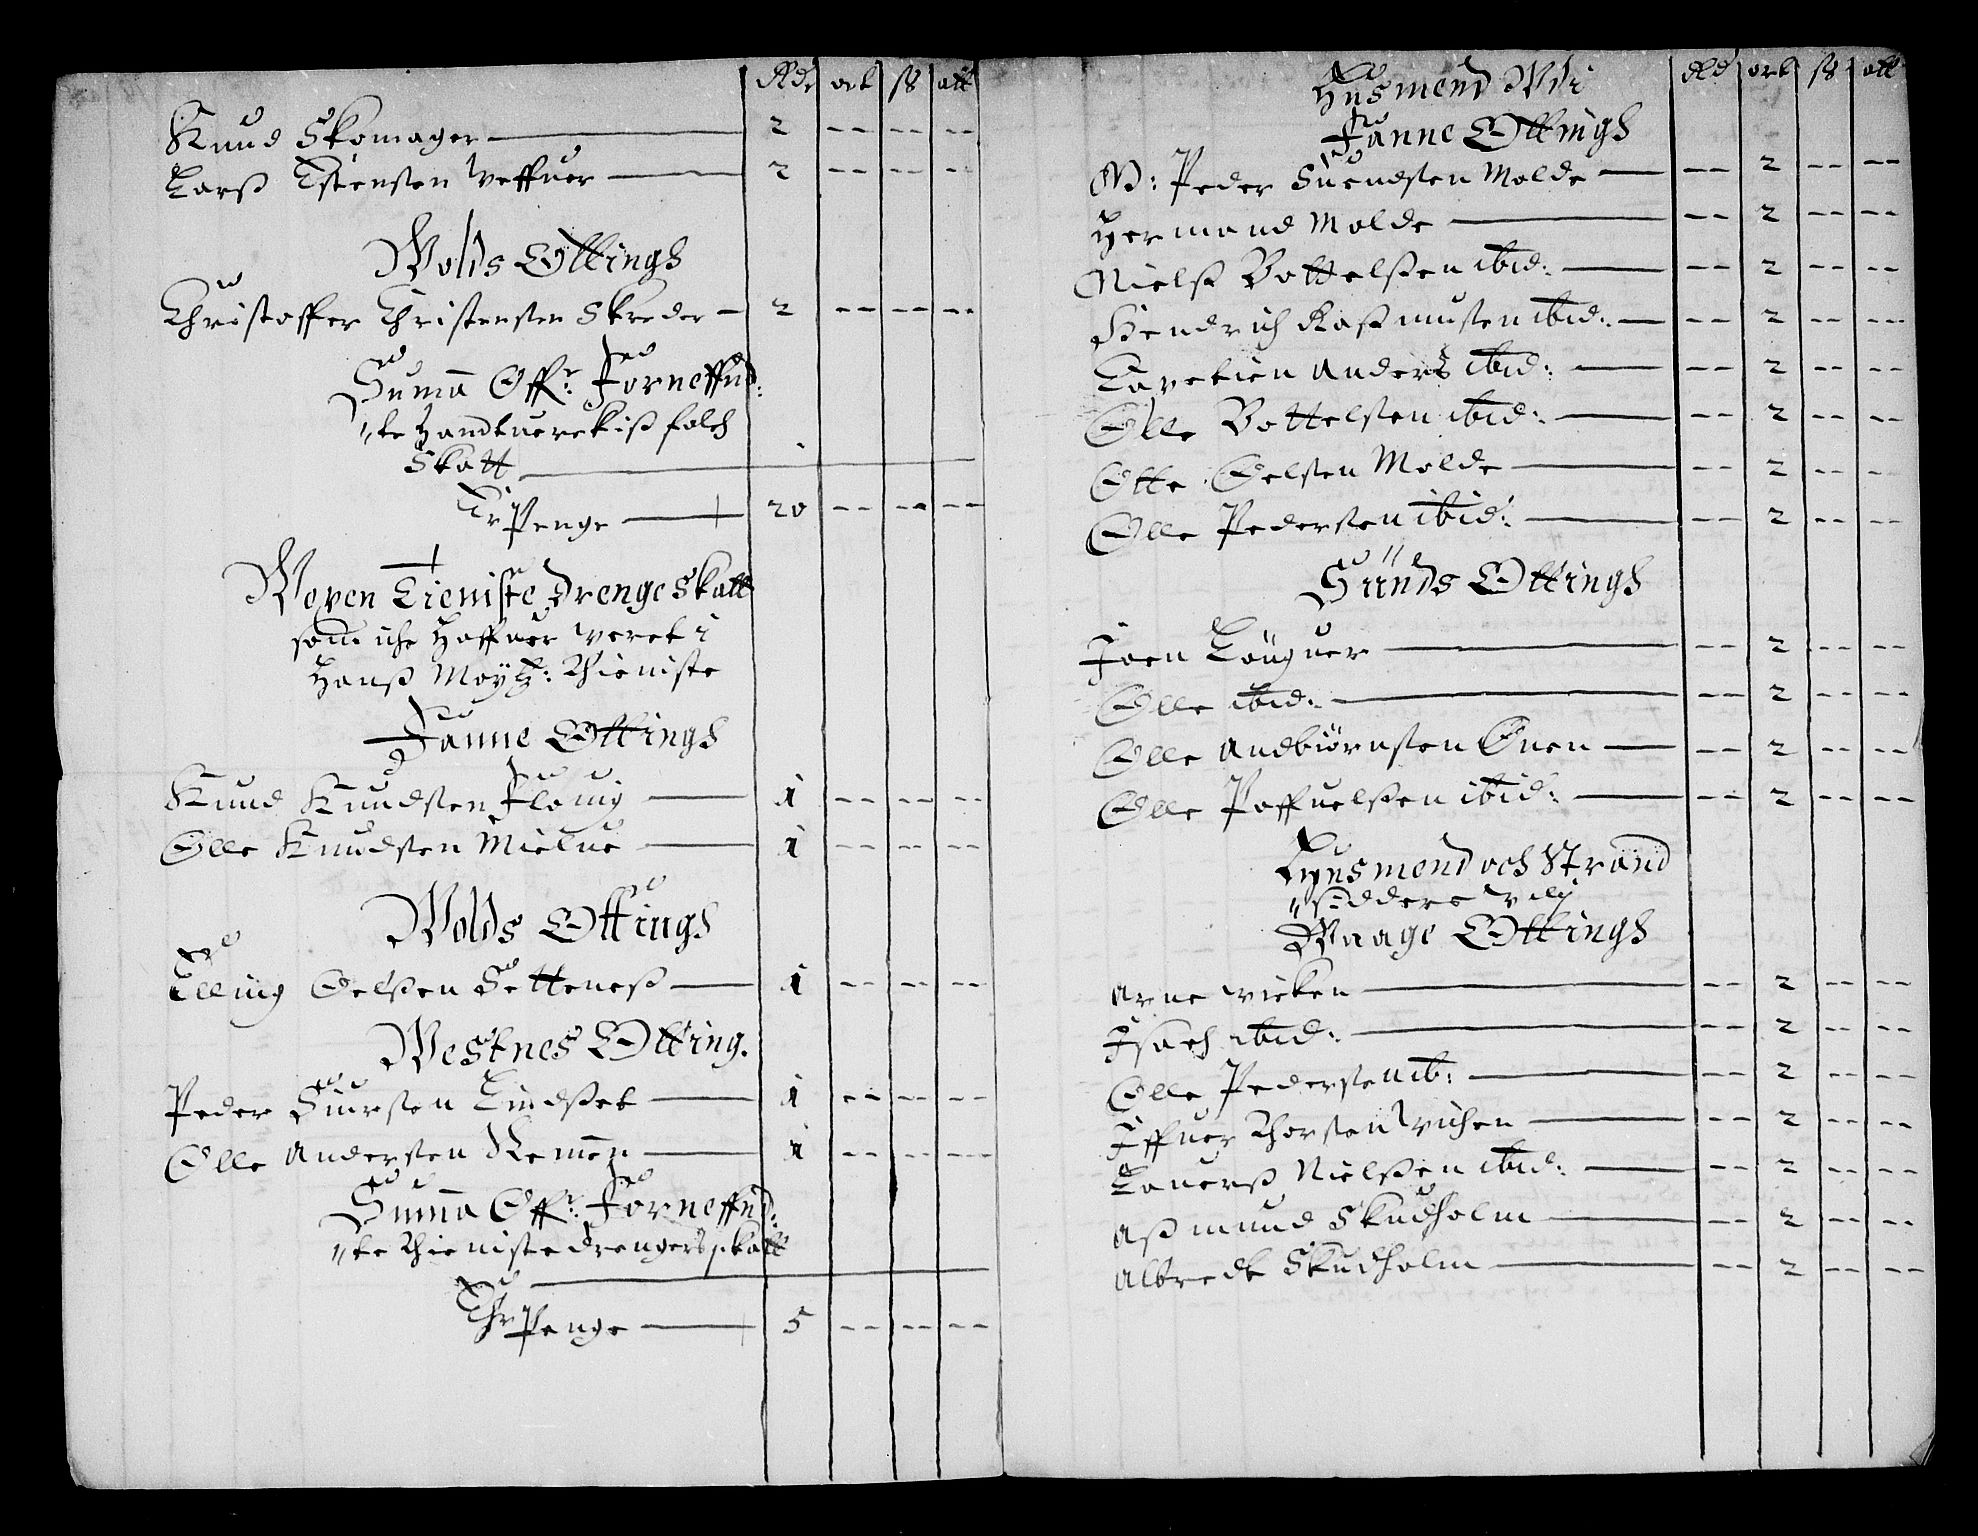 Rdr ort ß alb
Knud Skomager — 2 -- -- --
Larß Estensen Veffuer — 2 -- -- --
Wolds Ottings
Christoffer Christensen Skreder — 2 -- -- --
Suma Offr: Forneffnd:
"te Handtuerckiß folch
Skatt
Er Penge — 20 -- -- --
Woxen Tieniste Drenge Skatt
som iche Haffuer veret i
Hanß Mayß: Thieniste
Fanne Ottings
Knud Knudsen Flouig — 1 -- -- --
Olle Knudsen Mielue — 1 -- -- --
Wolds Ottings
Elling Oelsen Setteneß — 1 -- -- --
Westnes Otting.
Peder Siursen Lindset — 1 -- -- --
Olle Andersen Remen — 1 -- -- --
Suma Offr: Forneffnd:
"te Thieniste drengers skatt
Ehr Penge — 5 -- -- --
Husmend Wdi Rld ort ß alb
Fanne Ottings
M: Peder Suendsen Molde — -- 2 -- --
Hermand Molde — -- 2 -- --
Nielß Bottelsen ibid: — -- 2 -- --
Hendrich Raßmusen ibid: — -- 2 -- --
Anders ibid: — -- 2 -- --
Olle Bottelsen ibid: — -- 2 -- --
Otte Oelsen Molde — -- 2 -- --
Olle Pedersen ibid: — -- 2 -- --
Sünds Ottings
Joen Lönguer — -- 2 -- --
Olle ibid: — -- 2 -- --
Olle Andbiørnsen Ønen — -- 2 -- --
Olle Paffuelsen ibid: — -- 2 -- --
Husmend och Strand
"siddere Vdj
Waage Ottings
Arne vicken — -- 2 -- --
Isach ibid: — -- 2 -- --
Olle Pedersen ib: — -- 2 -- --
Iffuer Thorsen Vichen — -- 2 -- --
Lauerß Nielsen ibid: — -- 2 -- --
Aßmund Skudholm — -- 2 -- --
Albredt Skudholm — -- 2 -- --